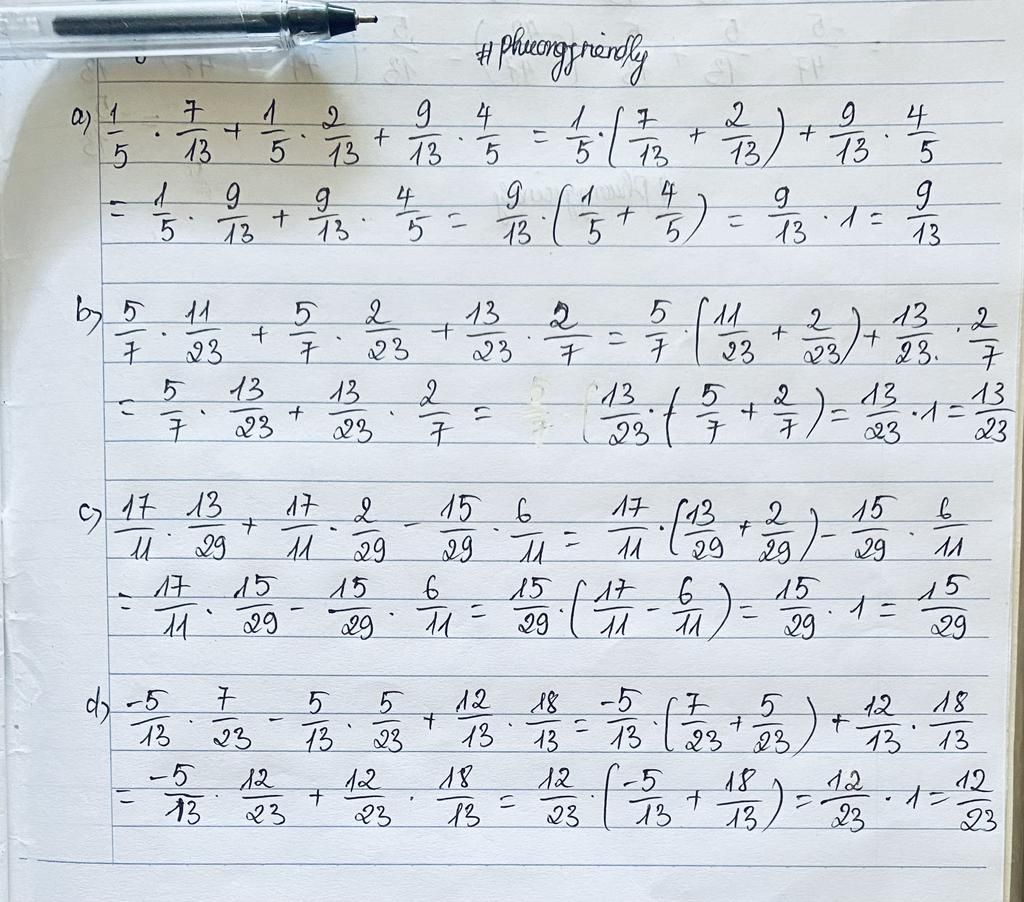 #phuongfriendly
a) 1/5 . 7/13 + 1/5 . 2/13 + 9/13 . 4/5 = 1/5 . (7/13 + 2/13) + 9/13 . 4/5
= 1/5 . 9/13 + 9/13 . 4/5 = 9/13 . (1/5 + 4/5) = 9/13 . 1 = 9/13
b) 5/7 . 11/23 + 5/7 . 2/23 + 13/23 . 2/7 = 5/7 . (11/23 + 2/23) + 13/23 . 2/7
= 5/7 . 13/23 + 13/23 . 2/7 = 13/23 . (5/7 + 2/7) = 13/23 . 1 = 13/23
c) 17/11 . 13/29 + 17/11 . 2/29 - 15/29 . 6/11 = 17/11 . (13/29 + 2/29) - 15/29 . 6/11
= 17/11 . 15/29 - 15/29 . 6/11 = 15/29 . (17/11 - 6/11) = 15/29 . 1 = 15/29
d) -5/13 . 7/23 - 5/13 . 5/23 + 12/13 . 18/13 = -5/13 . (7/23 + 5/23) + 12/13 . 18/13
= -5/13 . 12/23 + 12/23 . 18/13 = 12/23 . (-5/13 + 18/13) = 12/23 . 1 = 12/23